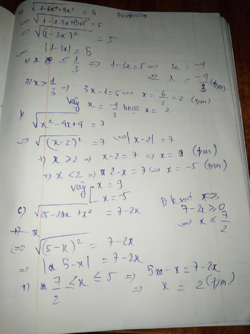 √(1-6x+9x²) = 5
⇔ √(1-2.3x+(3x)²) = 5
⇔ √(1-3x)² = 5
⇔ |1-3x| = 5
+) x ≤ 1/3 ⇒ 1-3x=5 ⇒ 3x = -4
⇔ x = -4/3 (t/m)
+) x > 1/3 ⇒ 3x-1=5 ⇔ x = 6/3 = 2 (t/m)
Vậy x = -4/3 hoặc x = 2
b) √(x²-4x+4) = 7
⇔ √(x-2)² = 7 ⇔ |x-2| = 7
+) x ≥ 2 ⇒ x-2 = 7 ⇒ x = 9 (t/m)
+) x < 2 ⇒ 2-x = 7 ⇔ x = -5 (t/m)
Vậy [x = 9
x = -5
c) √(25-10x+x²) = 7-2x
7-2x ≥ 0
⇔ x ≤ 7/2
⇔ √(5-x)² = 7-2x
⇔ |5-x| = 7-2x
5-x = 7-2x
⇒ x = 2 (t/m)